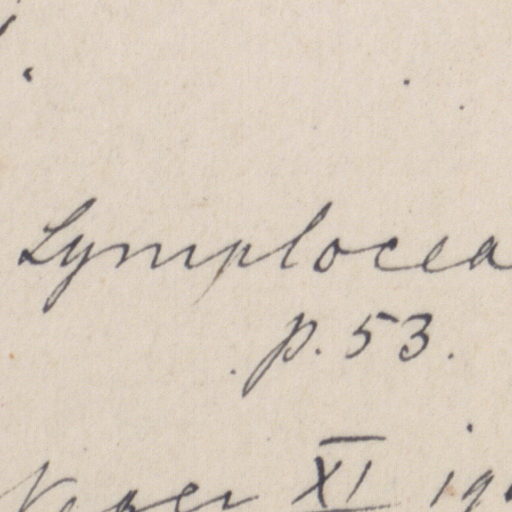 Symplocea
p. 53.
XI 19